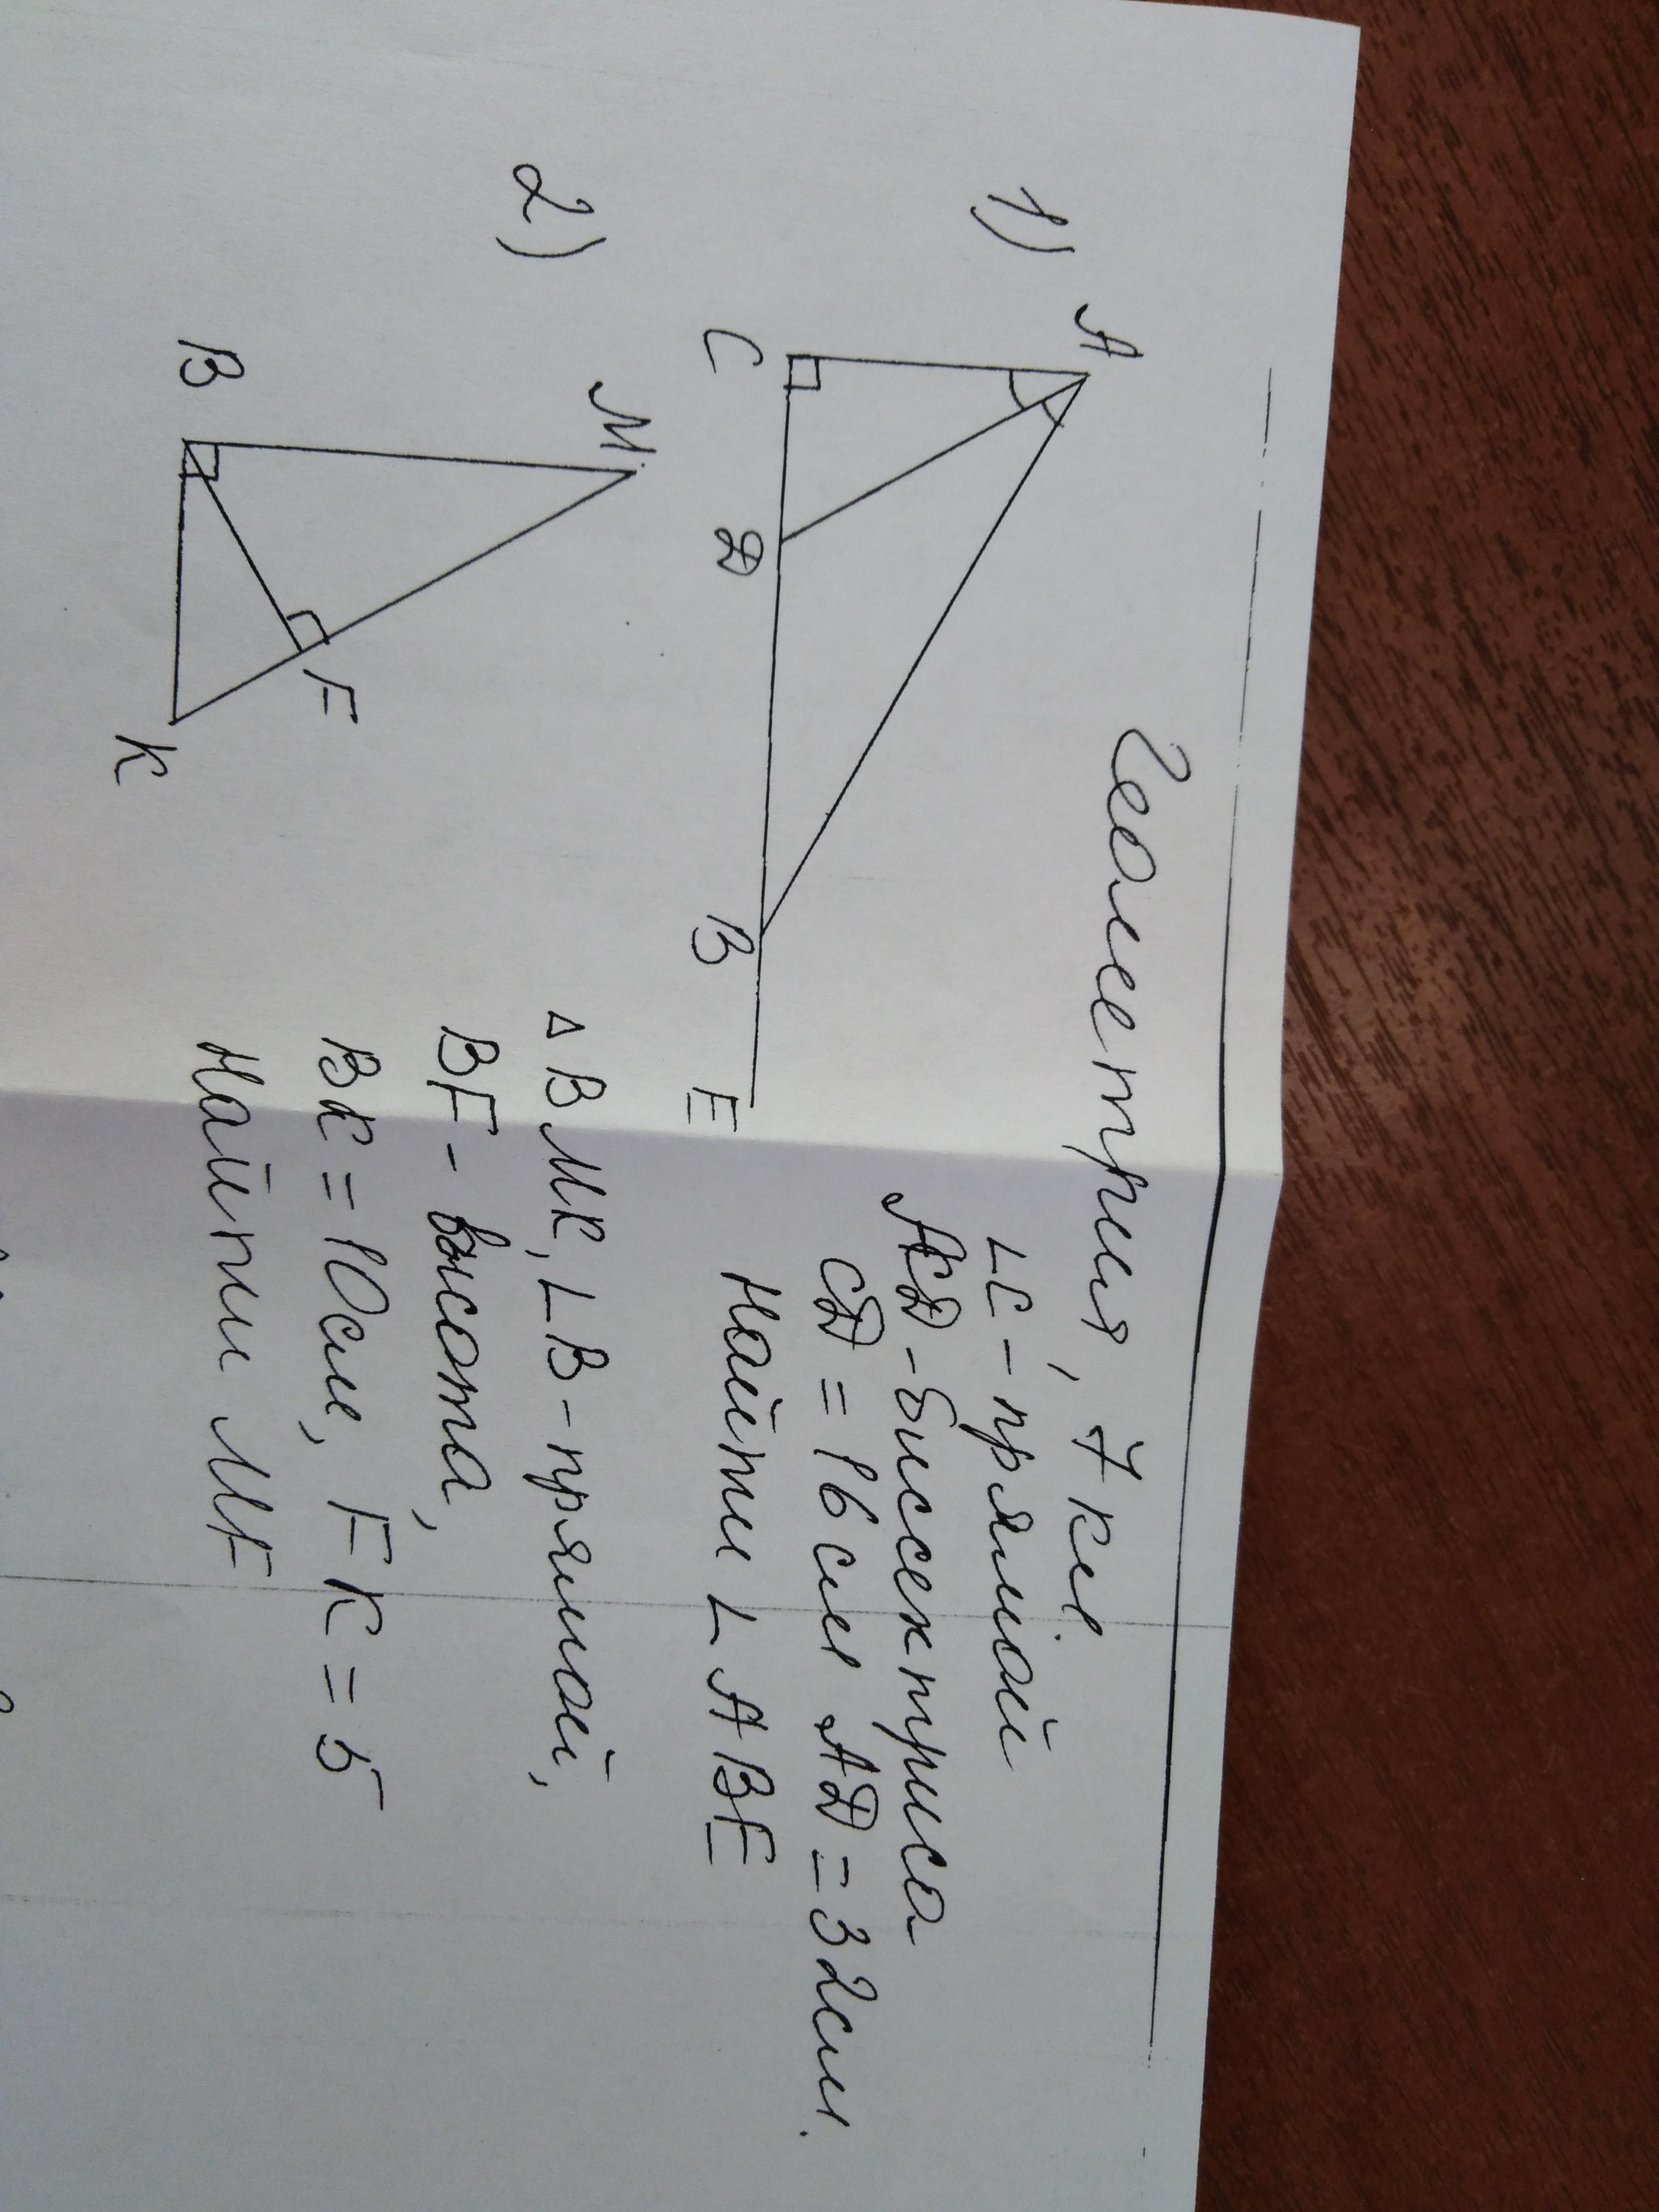 Геометрия, 7 кл.
1)
A
C
Д
B
E
∟C - прямой
АД - биссектриса
СД = 16 см АД = 32 см.
Найти ∟ABE
2)
M
B
F
K
△ BMK, ∟B - прямой,
BF - высота,
BK = 10 см, FK = 5
Найти MF